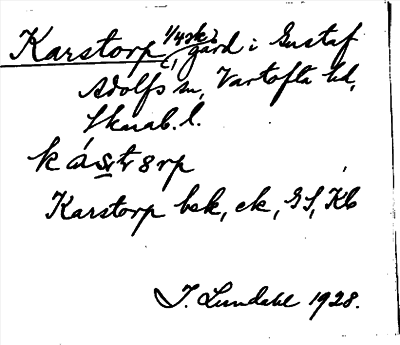 Karstorp, 1/4 sk? gård i Gustaf
Adolfs sn, Vartofta hd,
Skarab. l.
kástrp
Karstorp bek, ek, GS, Kb
I. Lundahl 1928.